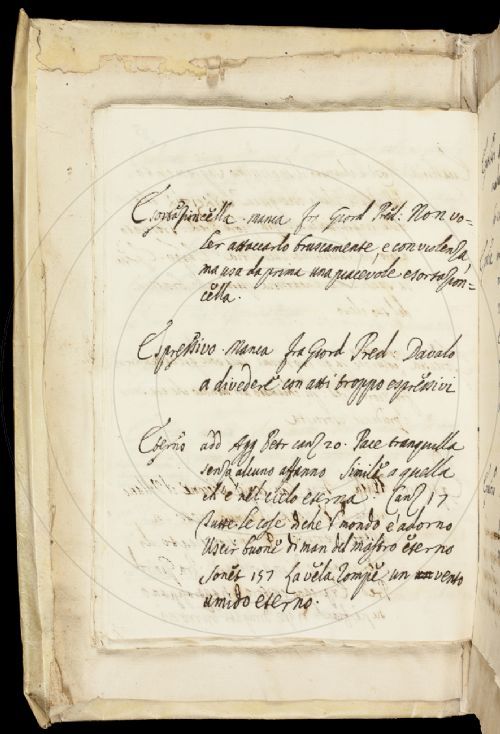 Esortazioncella manca fra Giord Pred: Non vo=
ler attaccarlo bruscamente, e con violenza
ma usa da prima una piacevole esortazion=
cella.
Espressivo Manca fra Giord Pred: Davalo
a divedere con atti troppo espressivi
Eterno add Agg Petr canz 20. Pace tranquilla
senza alcuno affanno Simile a quella
ch'è nel cielo eterna Canz 17
Tutte le cose di che 'l mondo è adorno
Uscir buone di man del mastro eterno
Sonet 157 La vela rompe un vento
umido eterno.